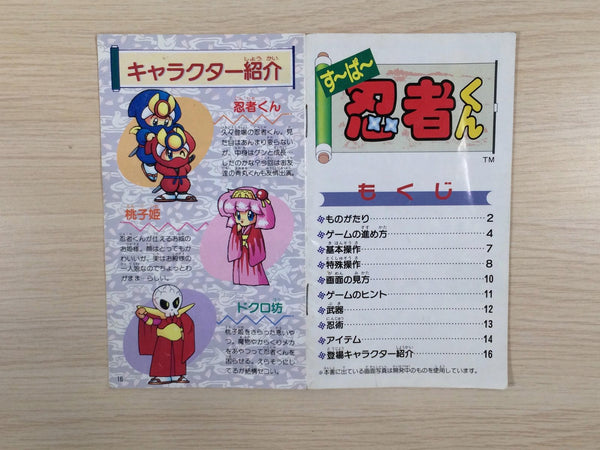 キャラクター紹介
しょう かい
忍者くん
久々登場の忍者くん。見
た目はあんまり変らない
が、中身はグンと成長
したのかな?今回はお友
達の青丸くんも友情出演。
桃子姫
忍者くんが仕えるお城の
お姫様。顔はとってもか
わいいが、実はお殿様の
一人娘なのでちょっとわ
がまま…らしい。
ドクロ坊
桃子姫をさらった悪いや
つ。魔物やからくりメカ
をあやつって忍者くんを
困らせる。えらそうにし
てるが結構セコい。
16
す〜ぱ〜
忍者くん
TM
もくじ
ものがたり 2
ゲームの進め方 4
基本操作 7
特殊操作 8
画面の見方 10
ゲームのヒント 11
武器 12
忍術 13
アイテム 14
登場キャラクター紹介 16
※本書に出ている画面写真は開発中のものを使用しています。